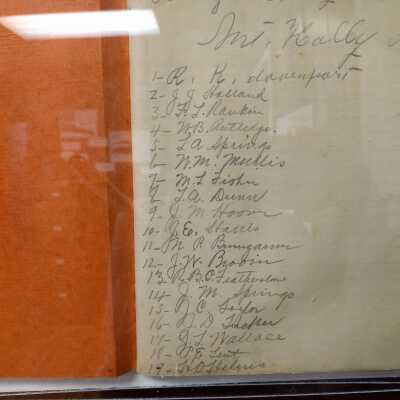 Mt. Holly
1- R. K. Davenport
2- J J Holland
3- F. L. Rankin
4- W.B. Rutledge
5- L A Springs
6- W.M.
7- M. L Fisher
8 L.A. Dunn
9- J. M. Hoover
10- J.E. Stowes
11- M R Bumgarner
12- J.W. Brown
13 B.C. Featherstone
14- J. M. Springs
15- J C Taylor
16- D
17- J L Wallace
18- Lent
19-